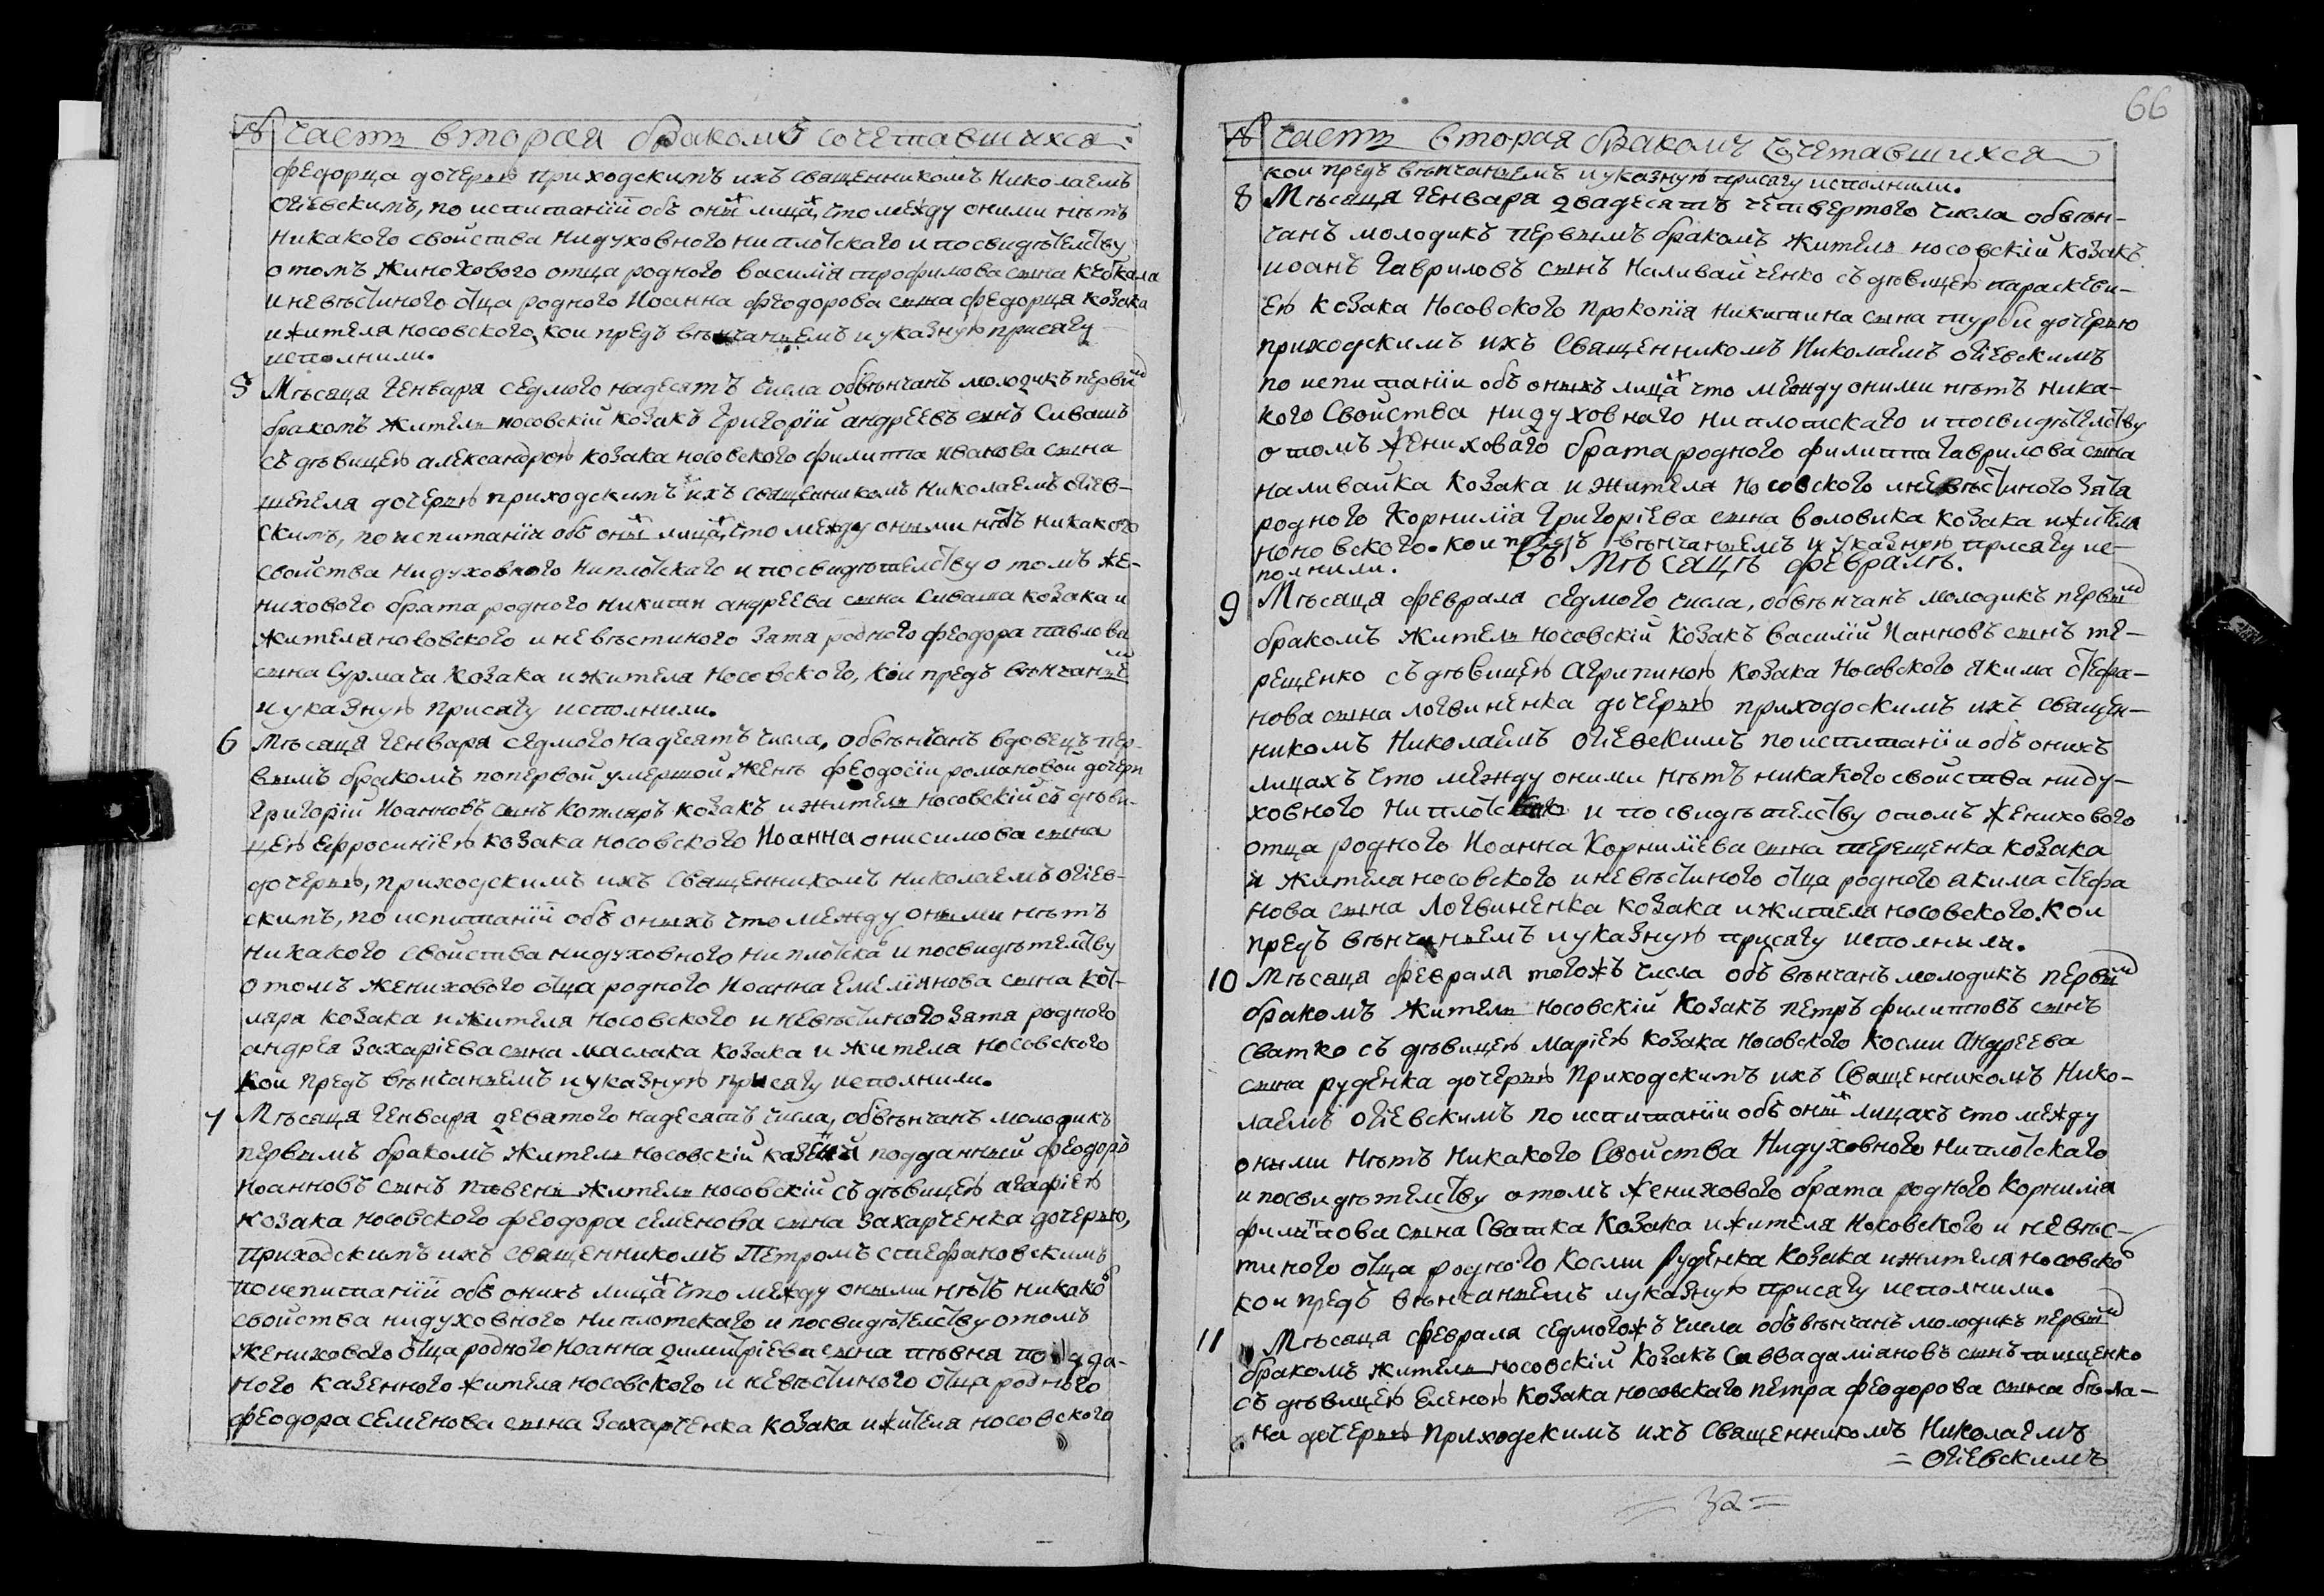 № Часть вторая бракомъ сочетавшихся
Федорца дочерью приходскимъ ихъ священникомъ Николаемъ
Огіевскимъ, по испитаніи объ оныхъ лицахъ, что между оними нѣтъ
никакого свойства ни духовного ни плотскаго и по свидѣтелству
о томъ жинохового отца родного Василія Трофимова сына Кебкала
и невѣстиного отца родного Иоанна Феодорова сына Федорца козака
и жителя носовского, кои предъ вѣнчаньемъ и указную присягу
исполнили.
5 Мѣсяца генваря седмого надесятъ числа обвѣнчанъ молодикъ первым
бракомъ житель носовскій козакъ Григорій Андреевъ сынъ Сивашъ
съ дѣвицею Александрою козака носовского Филиппа Иванова сына
Шепеля дочерью приходскимъ ихъ священникомъ Николаемъ Огіев-
скимъ, по испитаніи объ оныхъ лицахъ, что между оными нѣтъ никакого
свойства ни духовного ни плотскаго и по свидѣтелству о томъ же-
нихового брата родного Никити Андреева сына Сиваша козака и
жителя носовского и невѣстиного зятя родного Феодора Павлова
сына Сурмача козака и жителя носовского, кои предъ вѣнчаньем
и указную присягу исполнили.
6 Мѣсяца генваря седмого надесятъ числа, обвѣнчанъ вдовецъ пер-
вымъ бракомъ по первой умершой женѣ Феодосіи Романовой дочери
Григорій Иоанновъ сынъ Котляръ козакъ и житель носовскій съ дѣви-
цею Ефросиніею козака носовского Иоанна Онисимова сына
дочерью, приходскимъ ихъ священникомъ Николаемъ Огіев-
скимъ, по испитаніи объ оныхъ что между оными нѣтъ
никакого свойства ни духовного ни плотскаго и по свидѣтелству
о томъ женихового отца родного Иоанна Емеліянова сына Кот-
ляра козака и жителя носовского и невѣстиного зятя родного
Андрея Захаріева сына Маслака козака и жителя носовского
кои предъ вѣнчаньемъ и указную присягу исполнили.
7 Мѣсяца генваря девятого надесятъ числа, обвѣнчанъ молодикъ
первымъ бракомъ житель носовскій казенный подданный Феодоръ
Иоанновъ сынъ Пѣвень житель носовскій съ дѣвицею Агафіею
козака носовского Феодора Семенова сына Захарченка дочерью,
приходскимъ ихъ священникомъ Петромъ Стефановскимъ
по испитаніи объ онихъ лицахъ что между оными нѣтъ никакого
свойства ни духовного ни плотскаго и по свидѣтелству о томъ
женихового отца родного Иоанна Димитріева сына Пѣвня подда-
ного казенного жителя носовского и невѣстиного отца родного
Феодора Семенова сына Захарченка козака и жителя носовского
66
№ Часть вторая бракомъ сочетавшихся
кои предъ вѣнчаньемъ и указную присягу исполнили.
8 Мѣсяца генваря двадесятъ четвертого числа обвѣн-
чанъ молодикъ первымъ бракомъ житель носовскій козакъ
Иоанъ Гавриловъ сынъ Наливайченко съ дѣвицею Параскеви-
ею козака носовского Прокопія Никитина сына Турби дочерью
приходскимъ ихъ священникомъ Николаемъ Огіевскимъ
по испитаніи объ оныхъ лицахъ что между оними нѣтъ ника-
кого свойства ни духовнаго ни плотскаго и по свидѣтелству
о томъ жениховаго брата родного Филиппа Гаврилова сына
Наливайка козака и жителя носовского и невѣстиного зятя
родного Корнилія Григоріева сына Воловика козака и жителя
носовского. кои предъ вѣнчаньемъ и указную присягу ис-
полнили. Въ мѣсяцѣ февралѣ.
9 Мѣсяца февраля седмого числа, обвѣнчанъ молодикъ первым
бракомъ житель носовскій козакъ Василій Ианновъ сынъ Те-
рещенко съ дѣвицею Агрипиною козака носовского Якима Стефа-
нова сына Логвиненка дочерью приходоскимъ ихъ священ-
никомъ Николаемъ Огіевскимъ по испитаніи объ онихъ
лицахъ что между оними нѣтъ никакого свойства ни ду-
ховного ни плотскаго и по свидѣтелству о томъ женихового
отца родного Иоанна Корниліева сына Терещенка козака
и жителя носовского и невѣстиного отца родного Акима Стефа
нова сына Логвиненка козака и жителя носовского. кои
предъ вѣнчаньемъ и указную присягу исполнили.
10 Мѣсяца февраля тогожъ числа объ вѣнчанъ молодикъ первым
бракомъ житель носовскій козакъ Петръ Филипповъ сынъ
Сватко съ дѣвицею Маріею козака носовского Косми Андреева
сына Руденка дочерью приходскимъ ихъ священникомъ Нико-
лаемъ Огіевскимъ по испитаніи объ оныхъ лицахъ что между
оными нѣтъ никакого свойства ни духовного ни плотскаго
и по свидѣтелству о томъ женихового брата родного Корнилія
Филиппова сына Сватка козака и жителя носовского и невѣс-
тиного отца родного Косми Руденка козака и жителя носовского
кои предъ вѣнчаньемъ и указную присягу исполнили.
11 Мѣсяца февраля седмогожъ числа объвѣнчанъ молодикъ первым
бракомъ житель носовскій козакъ Савва Даміановъ сынъ Тищенко
съ дѣвицею Еленою козака носовскаго Петра Феодорова сына Бѣла-
на дочерью приходскимъ ихъ священникомъ Николаемъ
= Огіевскимъ